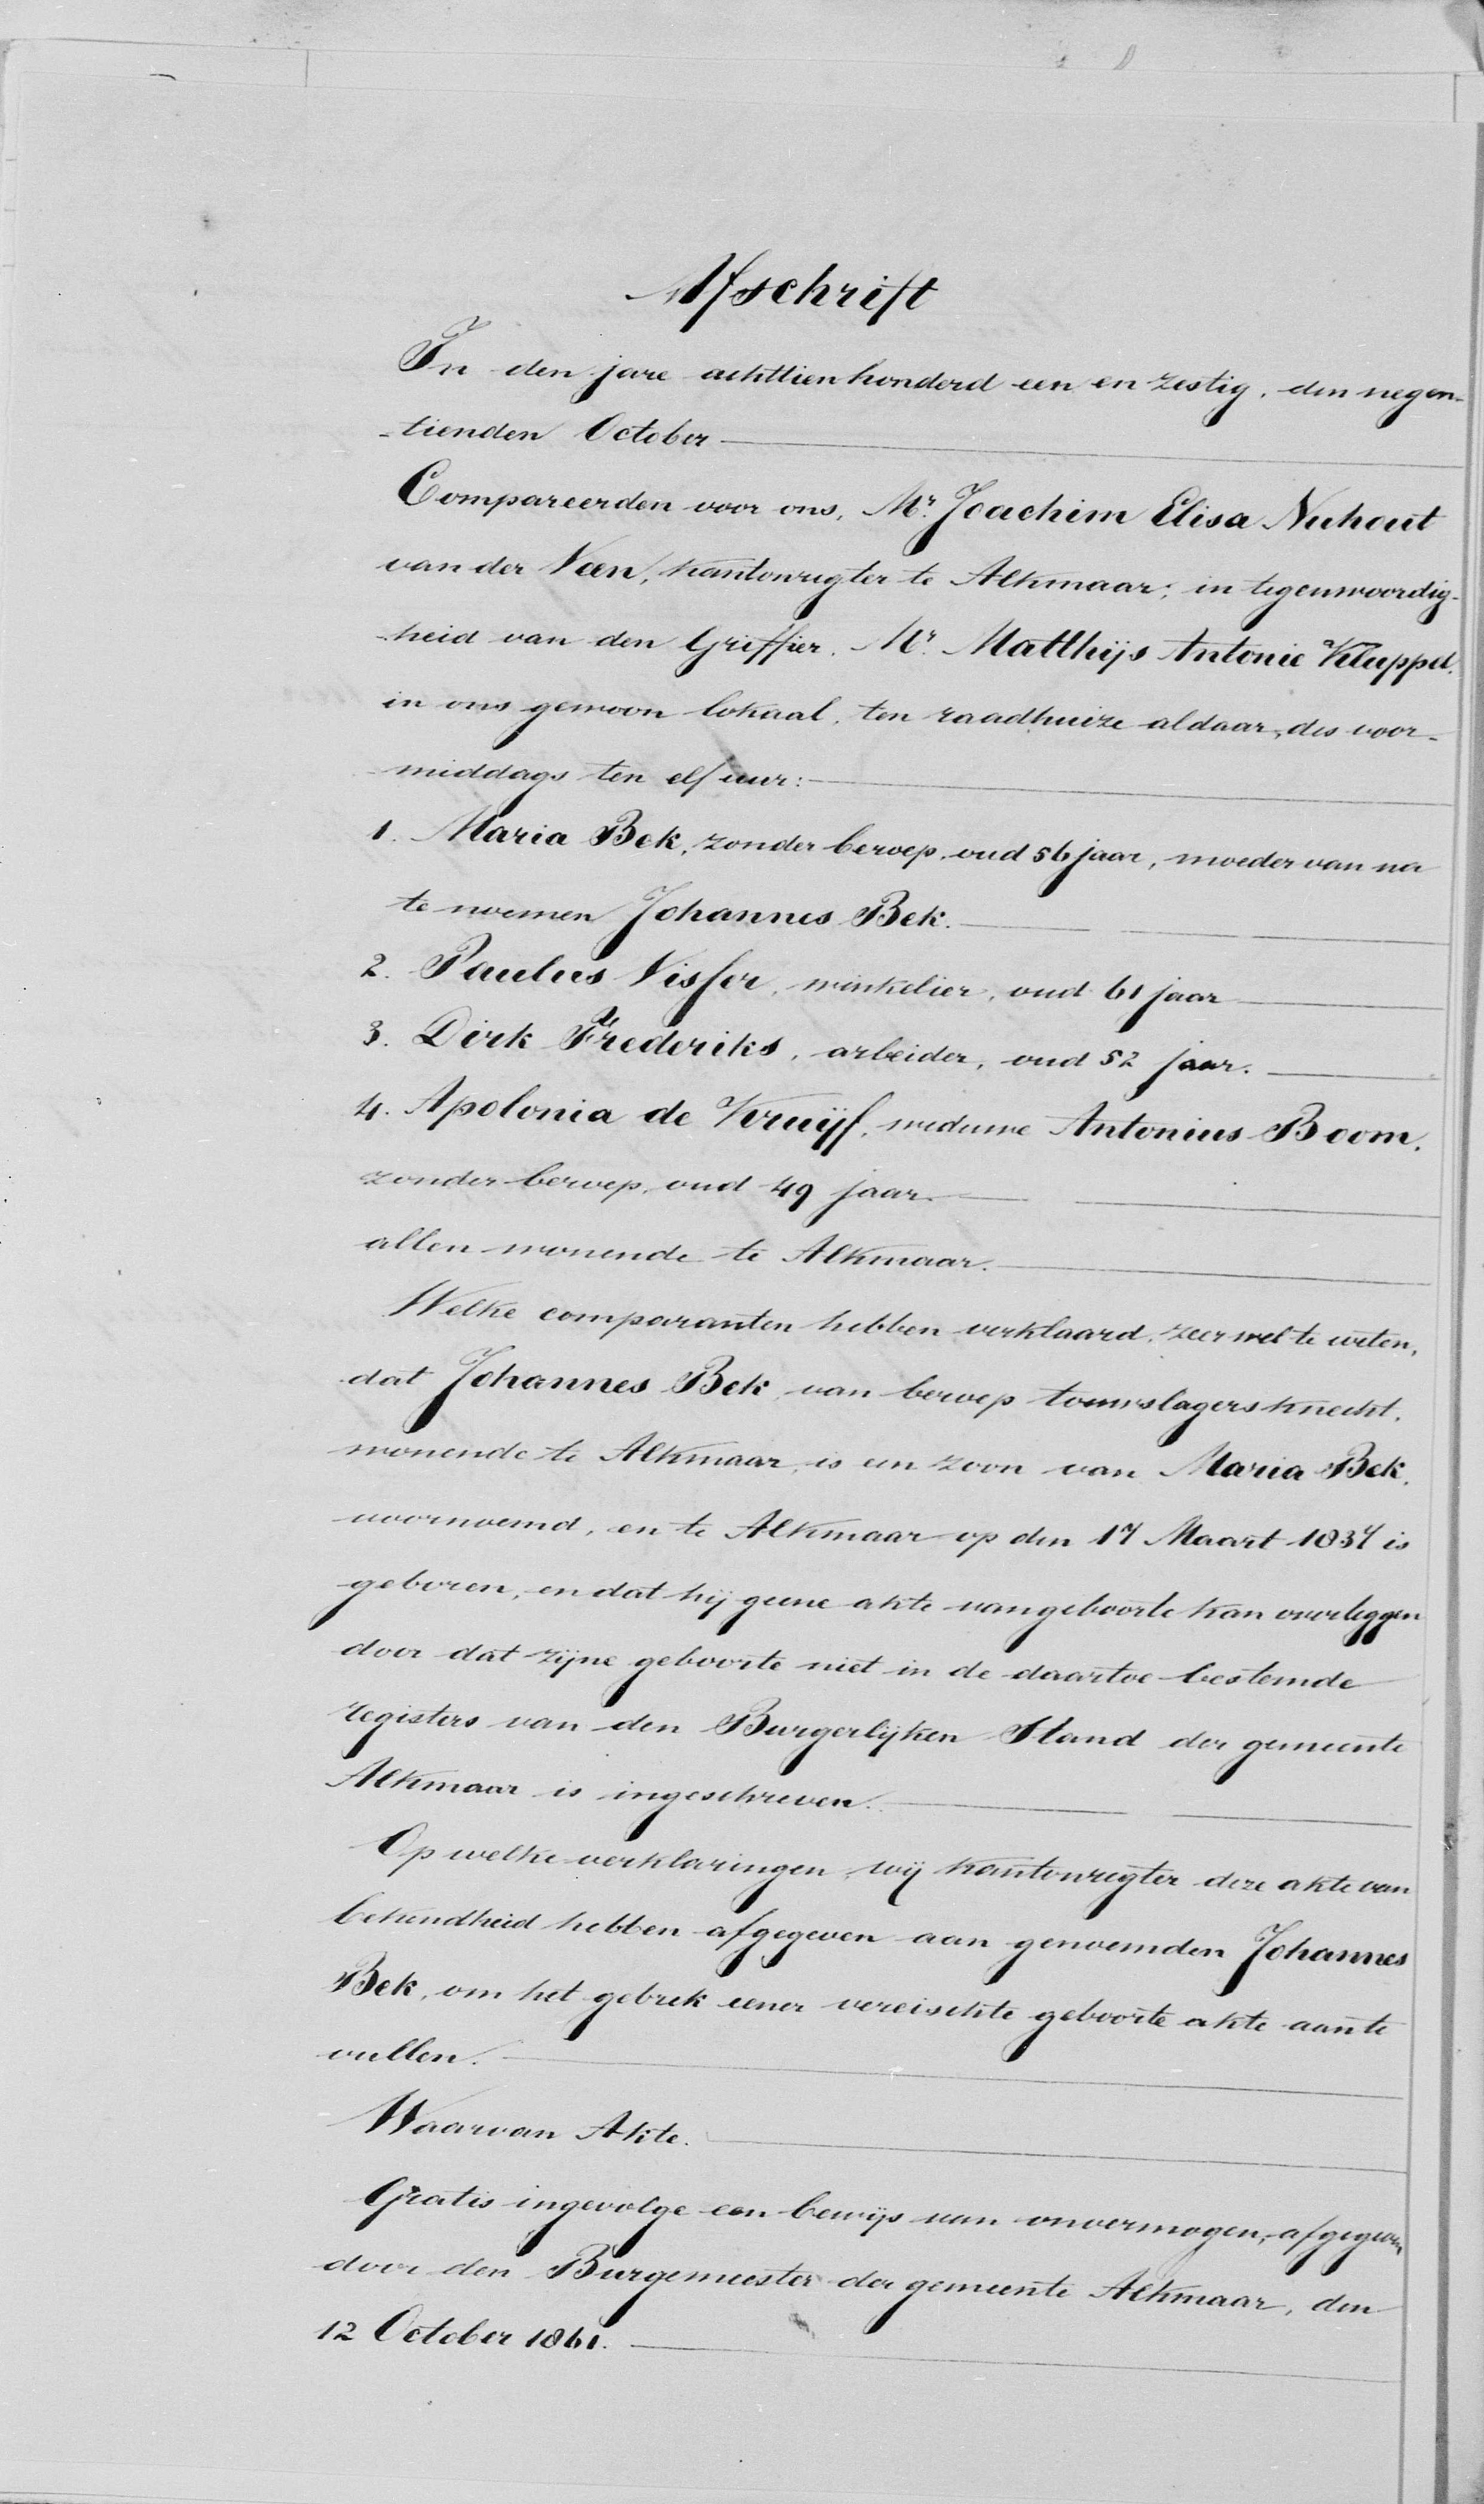 Afschrift
In den jare achttien honderd een en zestig, den negen-
-tienden October
Compareerden voor ons, Mr. Joachim Elisa Nuhout
van der Veen, kantonregter te Alkmaar, in tegenwoordig-
-heid van den Griffier, Mr. Matthijs Antonie Kluppel,
in ons gewoon lokaal, ten raadhuize aldaar, des voor-
-middags ten elf uur:
1. Maria Bek, zonder beroep, oud 56 jaar, moeder van na
te noemen Johannes Bek.
2. Paulus Visser, winkelier, oud 61 jaar
3. Dirk Frederiks, arbeider, oud 52 jaar.
4. Apolonia de Kruijf, weduwe Antonius Boom,
zonder beroep, oud 49 jaar.
allen wonende te Alkmaar.
Welke comparanten hebben verklaard, zeer wel te weten,
dat Johannes Bek, van beroep touwslagersknecht,
wonende te Alkmaar, is een zoon van Maria Bek,
voornoemd, en te Alkmaar op den 17 Maart 1837 is
geboren, en dat hij geene akte van geboorte kan overleggen
door dat zijne geboorte niet in de daartoe bestemde
registers van den Burgerlijken Stand der gemeente
Alkmaar is ingeschreven.
Op welke verklaringen, wij kantonregter deze akte van
bekendheid hebben afgegeven aan genoemden Johannes
Bek, om het gebrek eener vereischte geboorte akte aan te
vullen.
Waarvan Akte.
Gratis ingevolge een bewijs van onvermogen, afgegeven
door den Burgemeester der gemeente Alkmaar, den
12 October 1861.